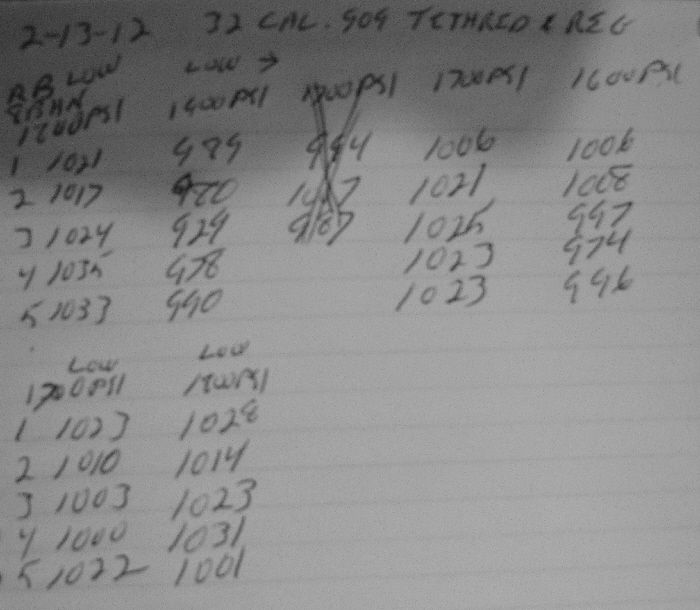 2-13-12 32 CAL. 909 TETHRED & REG
LOW LOW →
1800PSI 1400PSI 1700PSI 1700PSI 1600PSI
1 1021 989 994 1006 1006
2 1017 980 1021 1008
3 1024 929 987 1025 997
4 1035 978 1023 974
5 1033 990 1023 996
LOW LOW
1700PSI 1800PSI
1 1023 1028
2 1010 1014
3 1003 1023
4 1000 1031
5 1022 1001